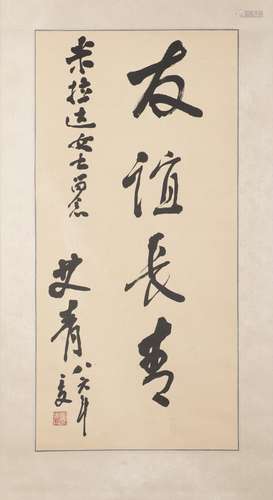 友誼長青
米拉达女士留念
艾青 八六年夏